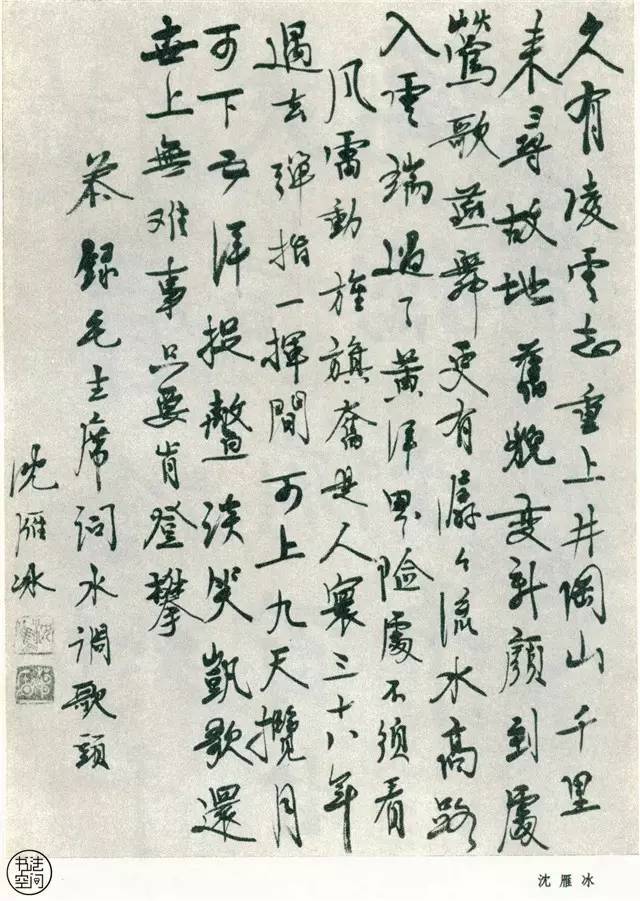 久有凌雲志重上井岡山千里
来尋故地舊貌变新顔到處
鶯歌燕舞更有潺々流水高路
入雲端過了黄洋界险處不须看
风雷動旌旗奮是人寰三十八年
過去弹指一揮間可上九天攬月
可下五洋捉鳖谈笑凱歌還
世上無难事只要肯登攀
恭録毛主席词水调歌頭
沈雁冰
书法
空间
沈雁冰